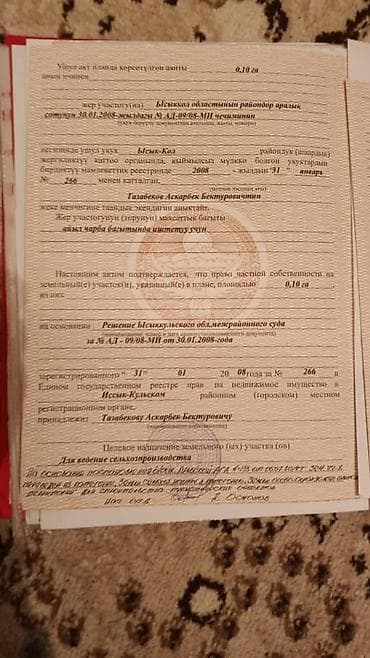 Ушул акт планда көрсөтүлгөн аянты 0,10 га
анын ичинен
жер участогу(на) Ысыккөл областынын райондор аралык
сотунун 30.01.2008-жылдагы № АД-09/08-МИ чечиминин
негизинде ушул укук Ысык-Көл райондук (шаардык)
жергиликтүү каттоо органында, кыймылсыз мүлккө болгон укуктардын
бирдиктүү мамлекеттик реестринде 2008 - жылдын "31" январь
№ 266 менен катталган,
Тазабеков Аскарбек Бектуровичтин
жеке менчигине таандык экендигин аныктайт.
Жер участогунун (торунун) максаттык багыты
айыл чарба багытында иштетүү үчүн
Настоящим актом подтверждается, что право частной собственности на
земельный(е) участок(и), указанный(е) в плане, площадью 0,10 га,
из них
на основании Решение Ысыккульского обл.межрайонного суда
за № АД - 09/08-МИ от 30.01.2008-года
зарегистрированного " 31" 01 20 08 года за № 266 в
Едином государственном реестре прав на недвижимое имущество в
Иссык-Кульском районном (городском) местном
регистрационном органе,
принадлежит: Тазабекову Аскарбек Бектуровичу
Целевое назначение земельного (ых) участка (ов)
Для ведение сельхозпроизводства
На основании
для строительства